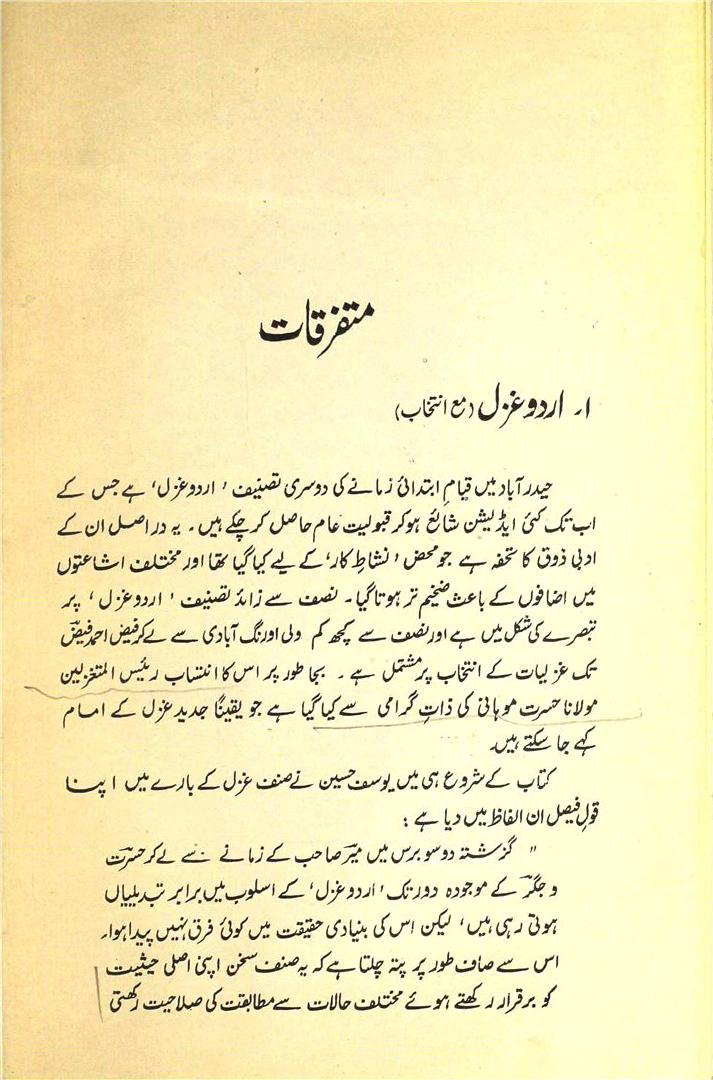 متفرقات
۱۔ اردو غزل (مع انتخاب)
حیدرآباد میں قیامِ ابتدائی زمانے کی دوسری تصنیف ’اردو غزل‘ ہے جس کے
اب تک کئی ایڈیشن شائع ہوکر قبولیت عام حاصل کرچکے ہیں۔ یہ دراصل ان کے
ادبی ذوق کا تحفہ ہے جو محض ’نشاطِ کار‘ کے لیے کیا گیا تھا اور مختلف اشاعتوں
میں اضافوں کے باعث ضخیم تر ہوتا گیا۔ نصف سے زائد تصنیف ’اردو غزل‘ پر
تبصرے کی شکل میں ہے اور نصف سے کچھ کم ولی اورنگ آبادی سے لے کر فیض احمد فیضؔ
تک غزلیات کے انتخاب پر مشتمل ہے۔ بجا طور پر اس کا انتساب رئیس المتغزلین
مولانا حسرت موہانی کی ذاتِ گرامی سے کیا گیا ہے جو یقیناً جدید غزل کے امام
کہے جاسکتے ہیں۔
کتاب کے شروع ہی میں یوسف حسین نے صنف غزل کے بارے میں اپنا
قولِ فیصل ان الفاظ میں دیا ہے :
" گزشتہ دو سو برس میں میرؔ صاحب کے زمانے سے لے کر حسرتؔ
و جگرؔ کے موجودہ دور تک ’اردو غزل‘ کے اسلوب میں برابر تبدیلیاں
ہوتی رہی ہیں، لیکن اس کی بنیادی حقیقت میں کوئی فرق نہیں پیدا ہوا۔
اس سے صاف طور پر پتہ چلتا ہے کہ یہ صنف سخن اپنی اصلی حیثیت
کو برقرار رکھتے ہوئے مختلف حالات سے مطابقت کی صلاحیت رکھتی